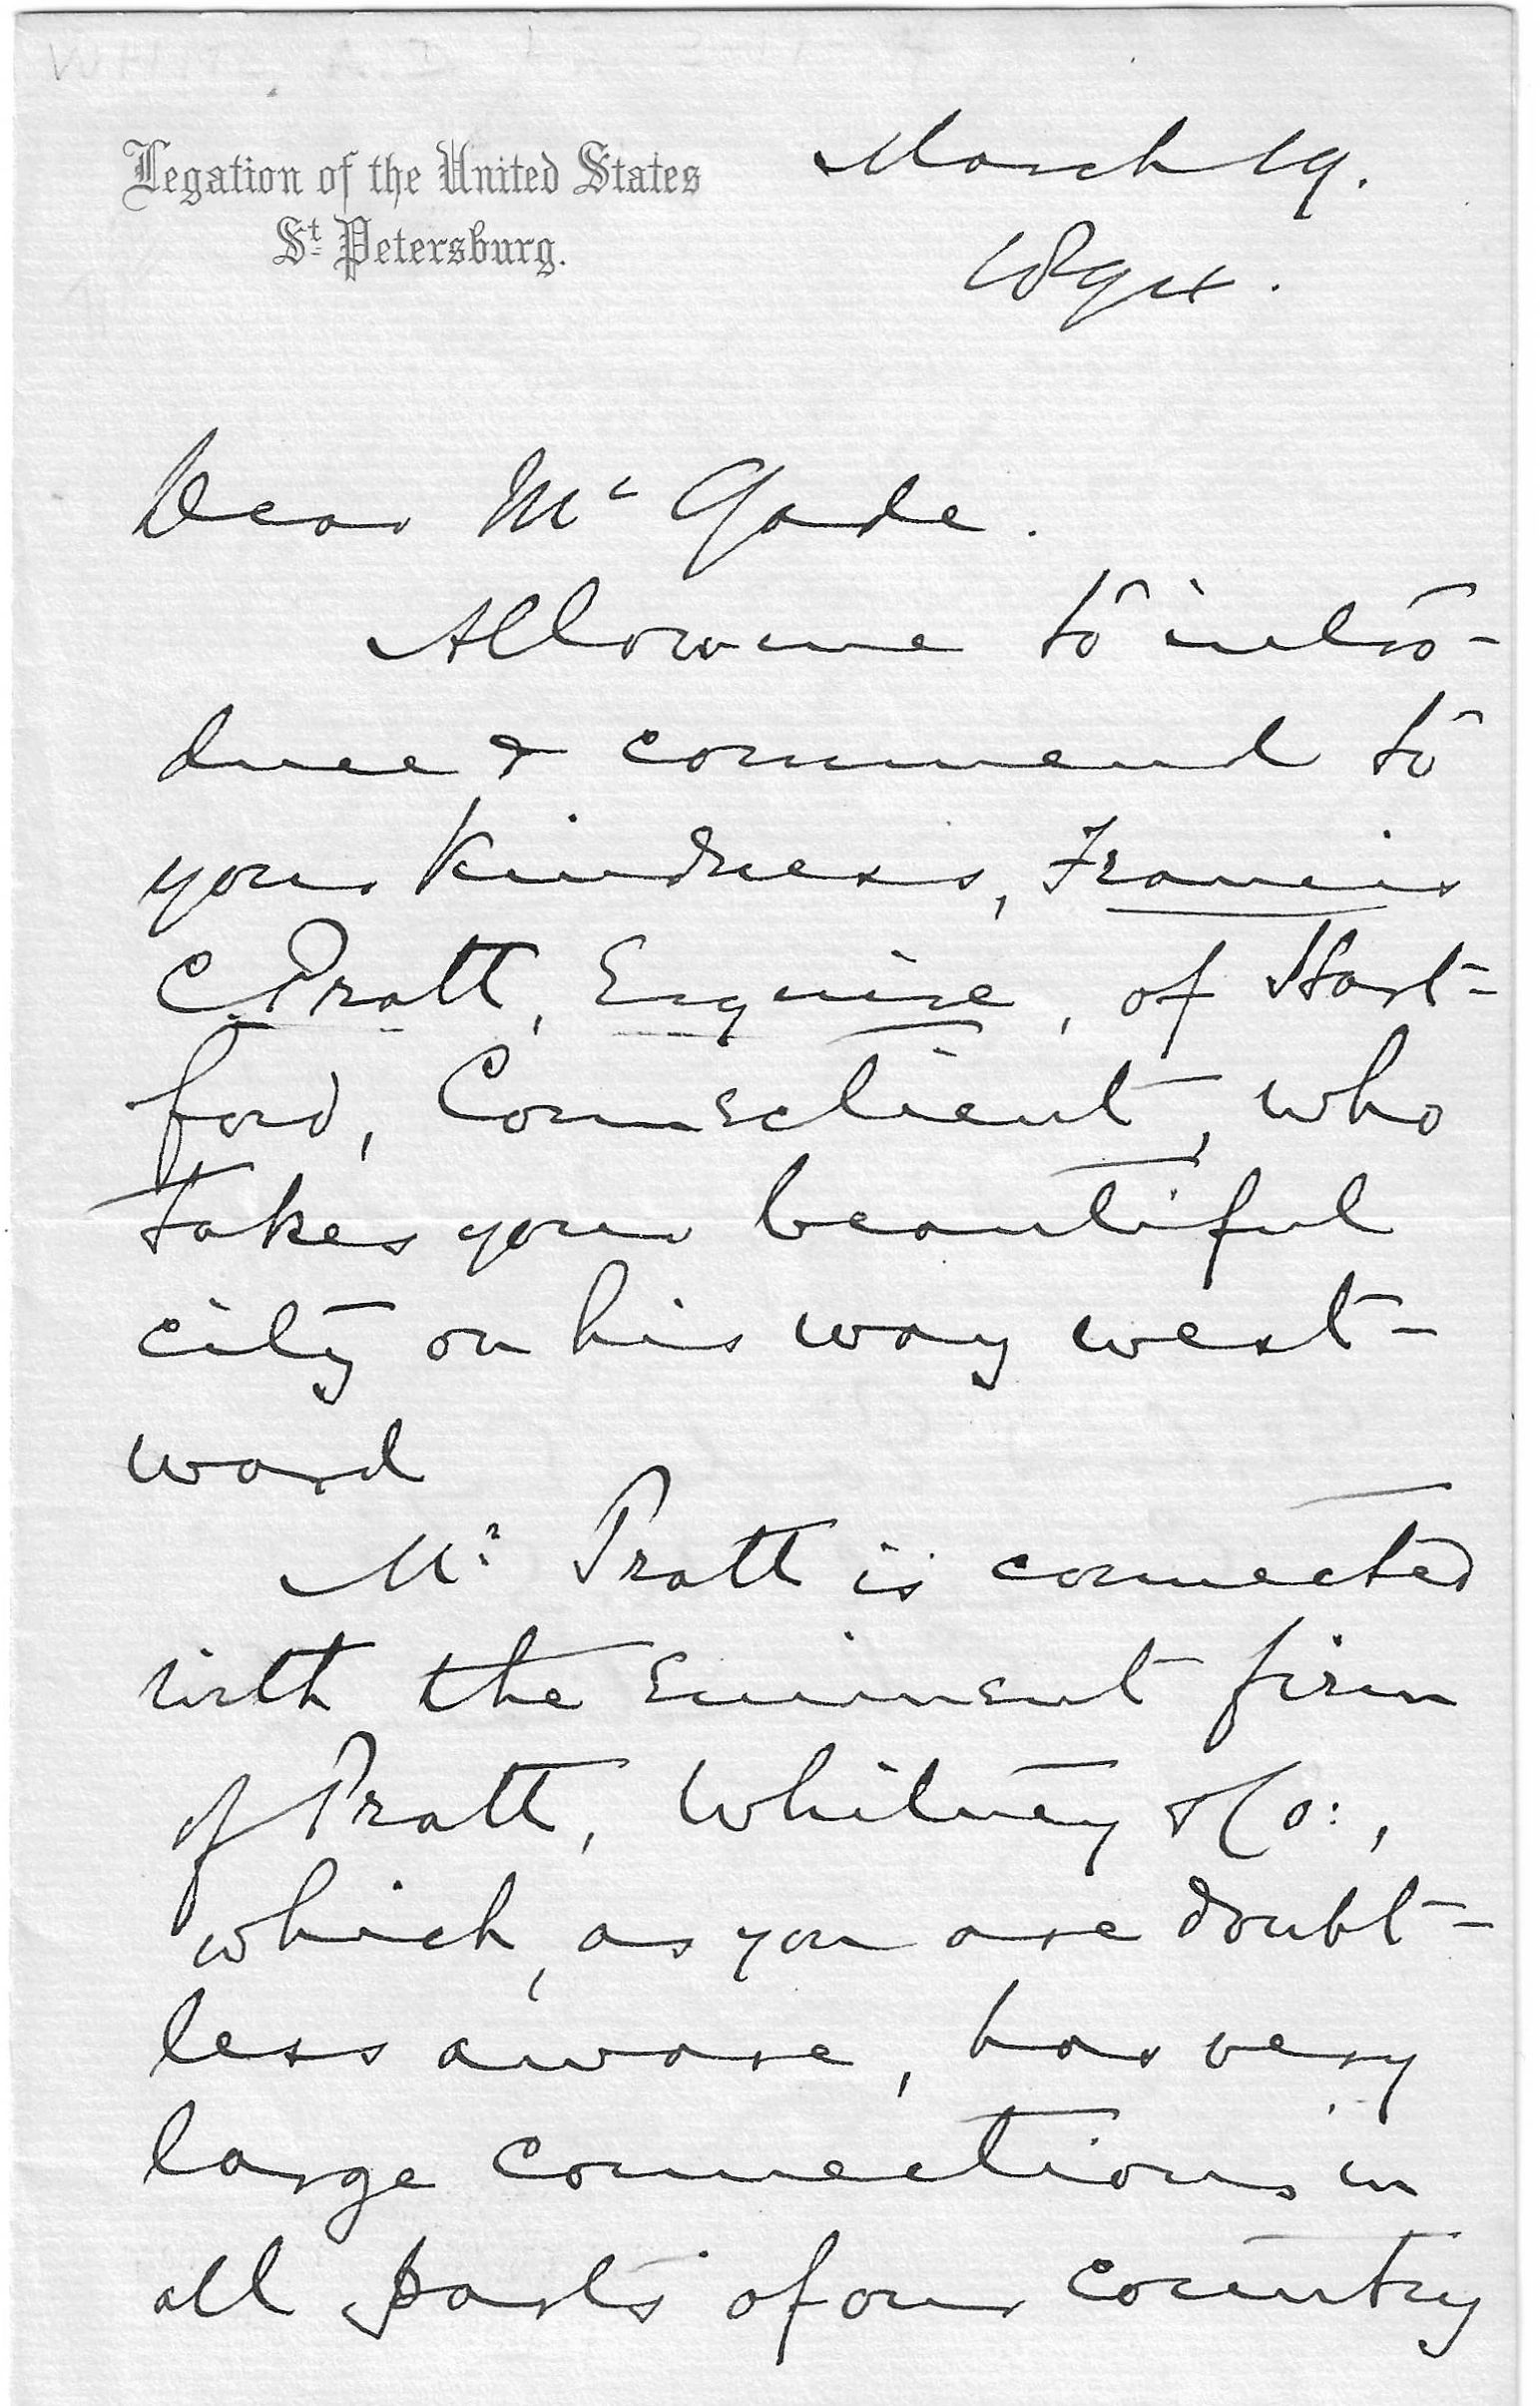 Legation of the United States
St Petersburg.
March 19.
1894.
Dear Mr Gade.
Allow me to intro-
duce & commend to
your kindness, Francis
C Pratt, Esquire, of Hart-
ford, Connecticut, who
takes your beautiful
city on his way west-
ward
Mr. Pratt is connected
with the eminent firm
of Pratt, Whitney & Co:,
which, as you are doubt-
less aware, has very
large connections in
all parts of our country